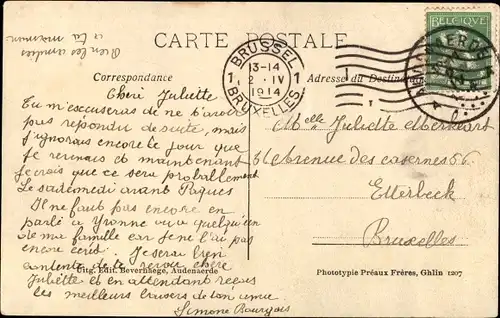 Bien les amitiés
à ta maman
CARTE POSTALE
Correspondance
Adresse du Destinataire
BELGIQUE
BRUSSEL
1 13-14 1
2 · IV
1914
BRUXELLES
Cheri Juliette
Tu m'excuseras de ne t'avoir
pas répondu de suite, mais
j'ignorais encore le jour que
je revenais et maintenant
je crois que ce sera probablement
Le samedi avant Paques
Il ne faut pas encore en
parlé a Yvonne vu a quelqu'un
de ma famille car je ne l'ai pas
encore écris. Je serai bien
contente de te revoir chère
Juliette et en attendant reçois
les meilleurs baisers de ton amie
Simone Bourgois
Melle Juliette Merckaert
56 Avenue des casernes 56
Etterbeck
Bruxelles
Uitg. Edit. Bevernaege, Audenaerde
Phototypie Préaux Frères, Ghlin 1207